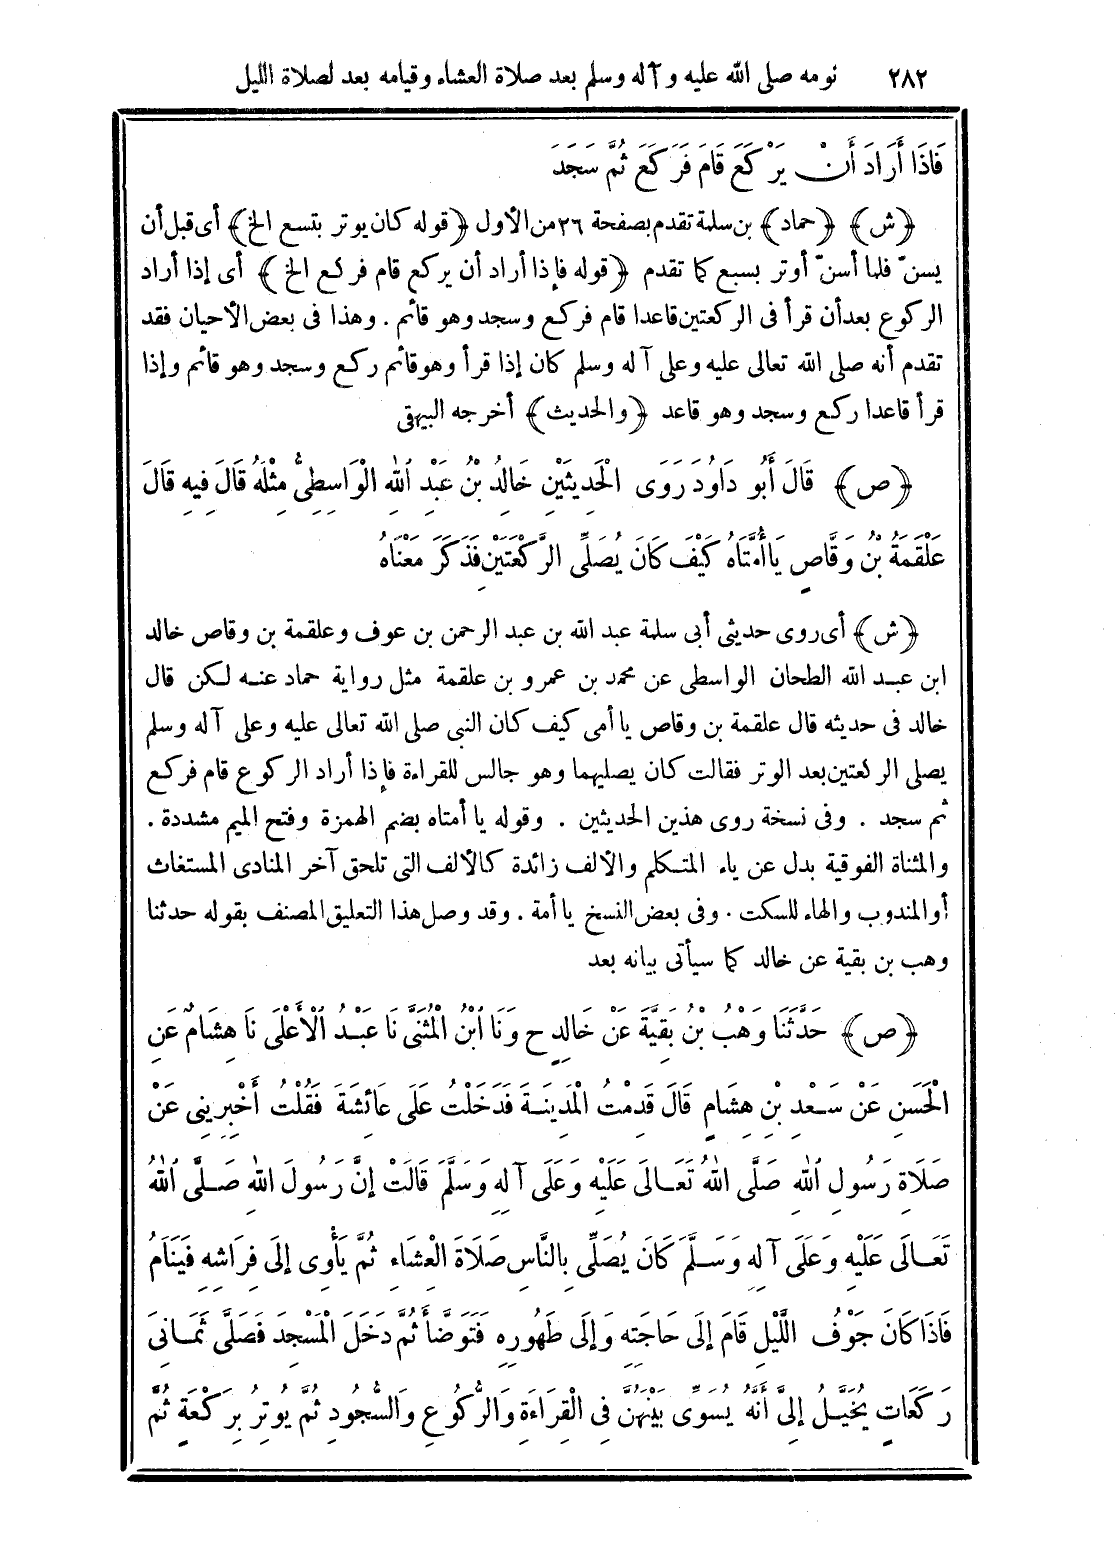 ٢٨٢ نومه صلى الله عليه وآله وسلم بعد صلاة العشاء وقيامه بعد لصلاة الليل
فَاذَا أَرَادَ أَنْ يَرْكَعَ قَامَ فَرَكَعَ ثُمَّ سَجَدَ
﴿ش﴾ ﴿حماد﴾ بن سلمة تقدم بصفحة ٢٦ من الأول ﴿قوله كان يوتر بتسع الخ﴾ أى قبل أن
يسنّ فلما أسنّ أوتر بسبع كما تقدم ﴿قوله فإذا أراد أن يركع قام فركع الخ﴾ أى إذا أراد
الركوع بعد أن قرأ فى الركعتين قاعدا قام فركع وسجد وهو قائم . وهذا فى بعض الأحيان فقد
تقدم أنه صلى الله تعالى عليه وعلى آله وسلم كان إذا قرأ وهو قائم ركع وسجد وهو قائم وإذا
قرأ قاعدا ركع وسجد وهو قاعد ﴿والحديث﴾ أخرجه البيهقى
﴿ص﴾ قَالَ أَبُو دَاوُدَ رَوَى الْحَدِيثَيْنِ خَالِدُ بْنُ عَبْدِ اللهِ الْوَاسِطِىُّ مِثْلَهُ قَالَ فِيهِ قَالَ
عَلْقَمَةُ بْنُ وَقَّاصٍ يَا أُمَّتَاهُ كَيْفَ كَانَ يُصَلِّى الرَّكْعَتَيْنِ فَذَكَرَ مَعْنَاهُ
﴿ش﴾ أى روى حديثى أبى سلمة عبد الله بن عبد الرحمن بن عوف وعلقمة بن وقاص خالد
ابن عبد الله الطحان الواسطى عن محمد بن عمرو بن علقمة مثل رواية حماد عنه لكن قال
خالد فى حديثه قال علقمة بن وقاص يا أمى كيف كان النبى صلى الله تعالى عليه وعلى آله وسلم
يصلى الركعتين بعد الوتر فقالت كان يصليهما وهو جالس للقراءة فإذا أراد الركوع قام فركع
ثم سجد . وفى نسخة روى هذين الحديثين . وقوله يا أمتاه بضم الهمزة وفتح الميم مشددة .
والمثناة الفوقية بدل عن ياء المتكلم والألف زائدة كالألف التى تلحق آخر المنادى المستغاث
أو المندوب والهاء للسكت . وفى بعض النسخ يا أمة . وقد وصل هذا التعليق المصنف بقوله حدثنا
وهب بن بقية عن خالد كما سيأتى بيانه بعد
﴿ص﴾ حَدَّثَنَا وَهْبُ بْنُ بَقِيَّةَ عَنْ خَالِدٍ ح وَنَا ابْنُ الْمُثَنَّى نَا عَبْدُ الْأَعْلَى نَا هِشَامٌ عَنِ
الْحَسَنِ عَنْ سَعْدِ بْنِ هِشَامٍ قَالَ قَدِمْتُ الْمَدِينَةَ فَدَخَلْتُ عَلَى عَائِشَةَ فَقُلْتُ أَخْبِرِينِى عَنْ
صَلَاةِ رَسُولِ اللهِ صَلَّى اللهُ تَعَالَى عَلَيْهِ وَعَلَى آلِهِ وَسَلَّمَ قَالَتْ إِنَّ رَسُولَ اللهِ صَلَّى اللهُ
تَعَالَى عَلَيْهِ وَعَلَى آلِهِ وَسَلَّمَ كَانَ يُصَلِّى بِالنَّاسِ صَلَاةَ الْعِشَاءِ ثُمَّ يَأْوِى إِلَى فِرَاشِهِ فَيَنَامُ
فَاذَا كَانَ جَوْفُ اللَّيْلِ قَامَ إِلَى حَاجَتِهِ وَإِلَى طَهُورِهِ فَتَوَضَّأَ ثُمَّ دَخَلَ الْمَسْجِدَ فَصَلَّى ثَمَانِىَ
رَكَعَاتٍ يُخَيَّلُ إِلَىَّ أَنَّهُ يُسَوِّى بَيْنَهُنَّ فِى الْقِرَاءَةِ وَالرُّكُوعِ وَالسُّجُودِ ثُمَّ يُوتِرُ بِرَكْعَةٍ ثُمَّ